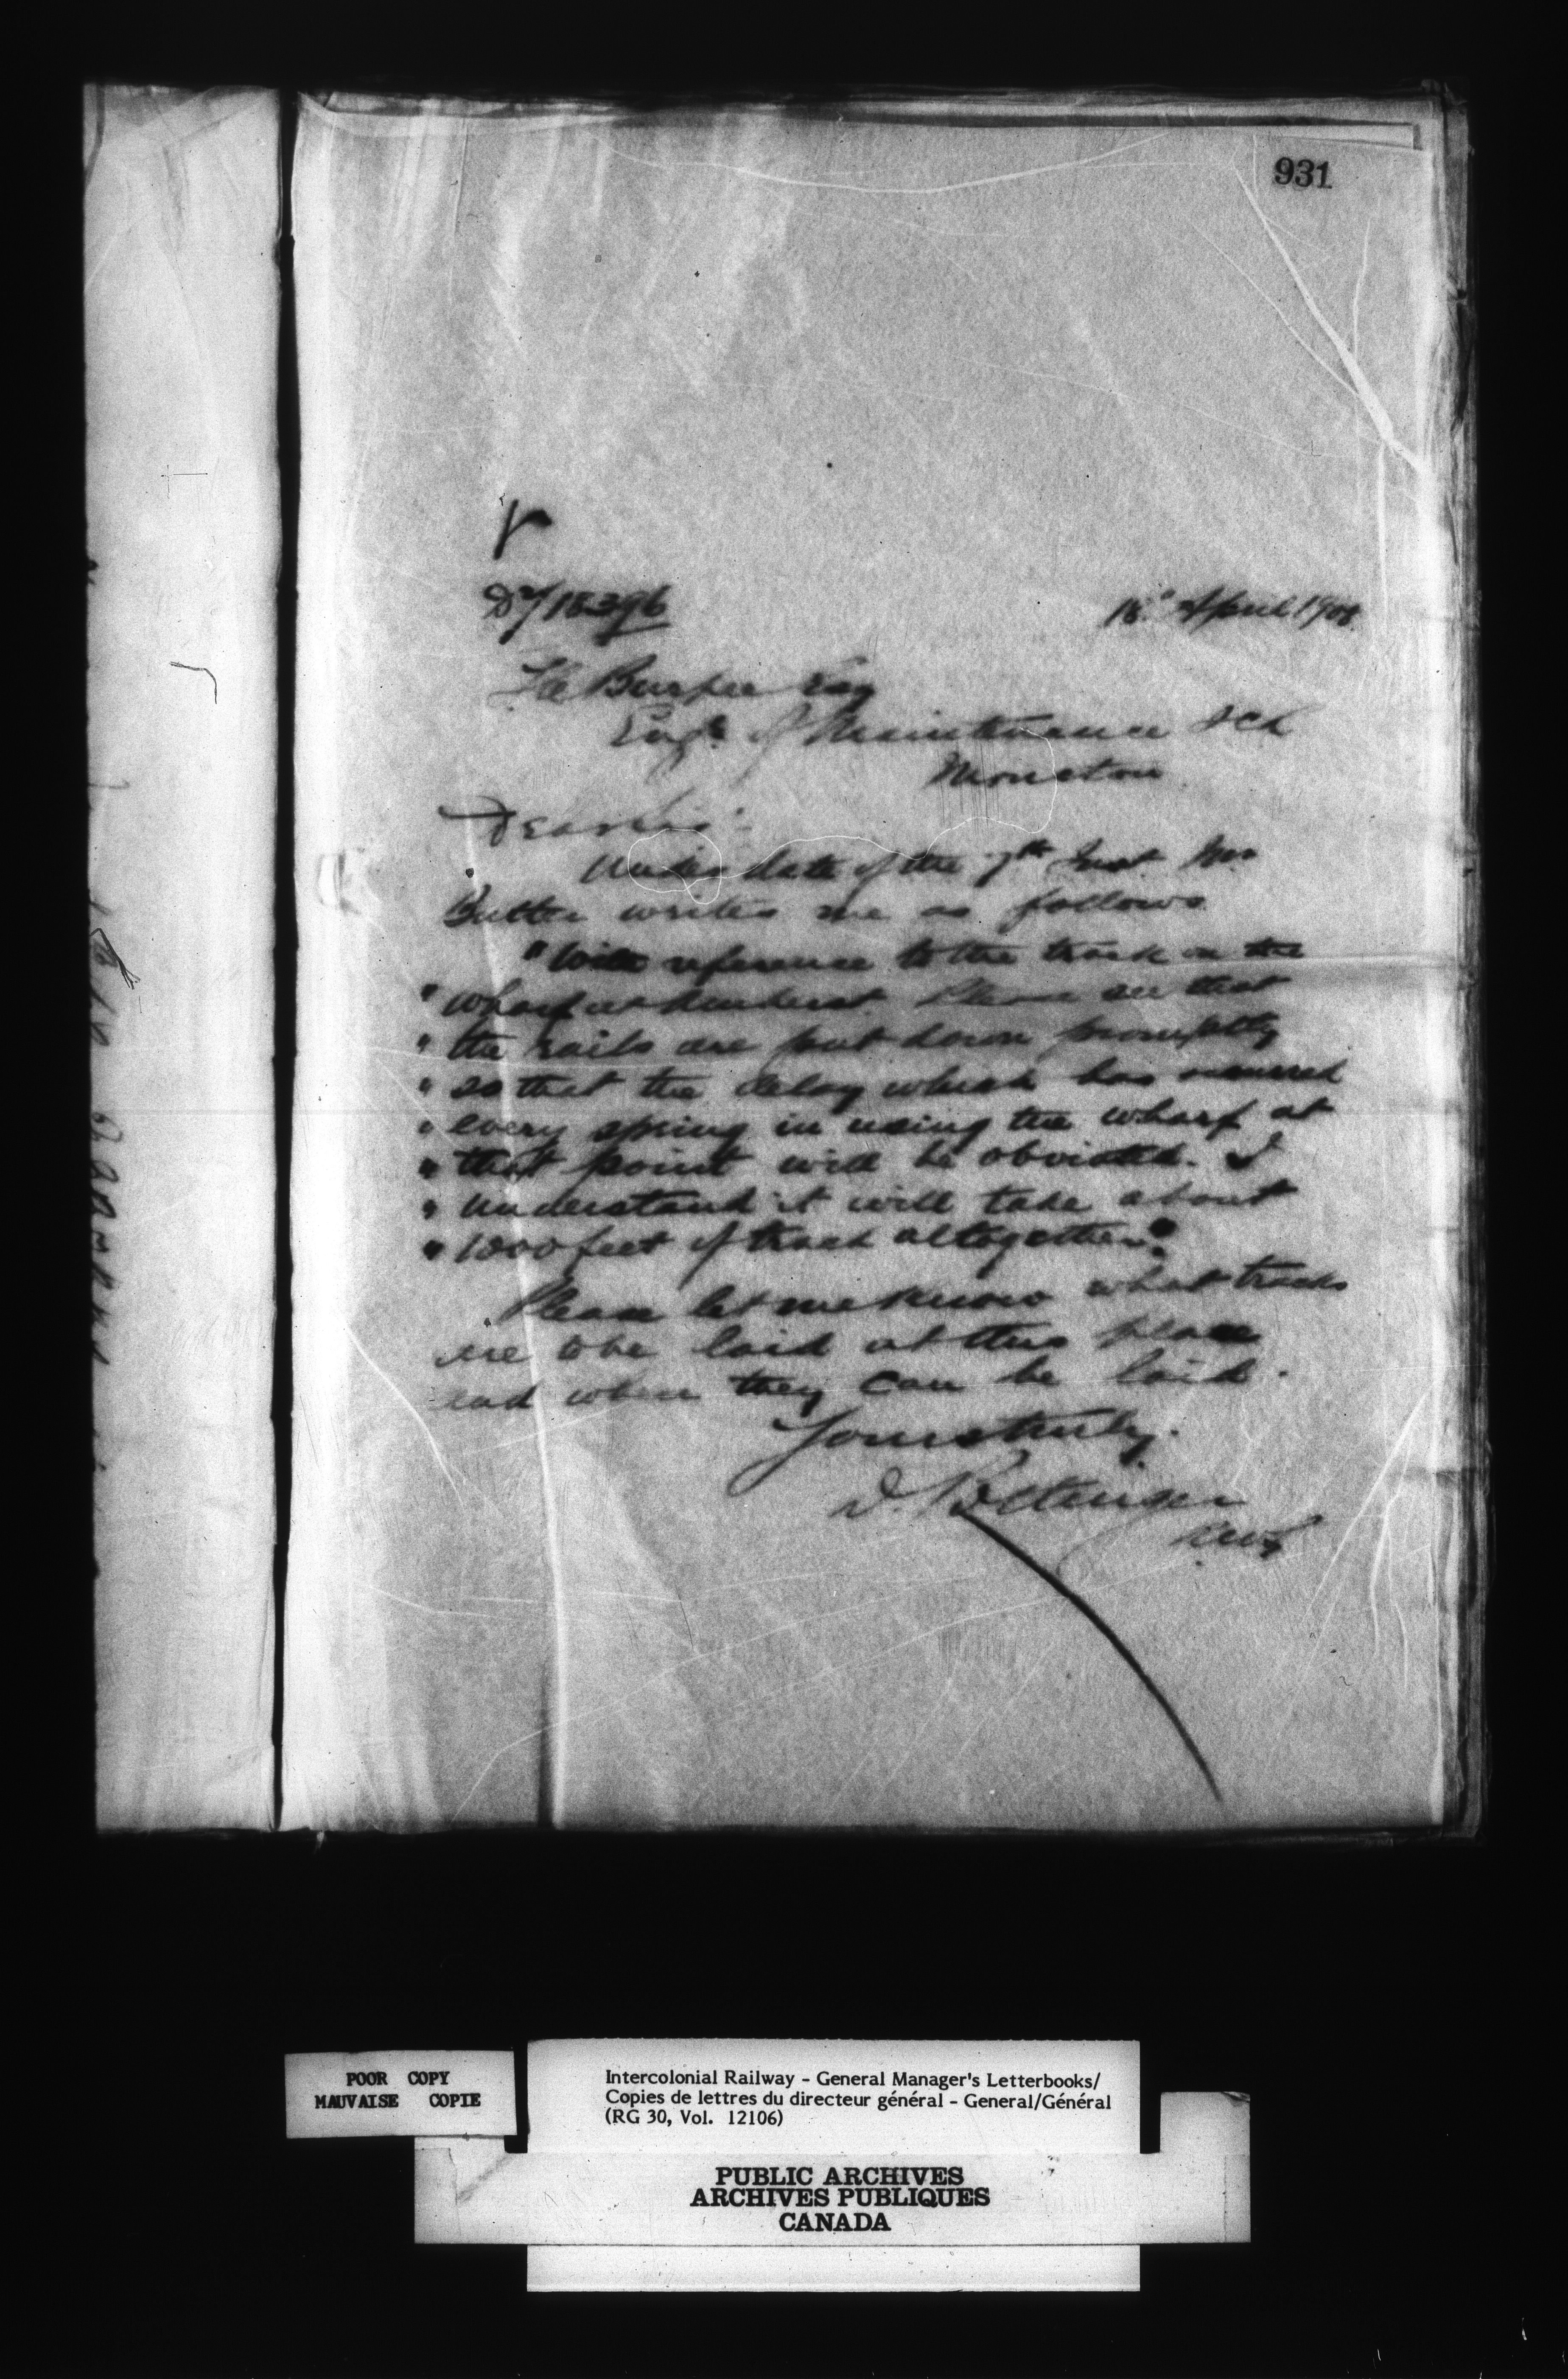 931
18th April 190
Burpee Esq
Engr of Maintenance ICR
Moncton
Dear Sir:
Under date of the 7th Inst. Mr
Butler writes me as follows
"With reference to the track on the
" wharf at Please see that
" the rails are put down promptly
" so that the delay which has occurred
" every spring in using the wharf at
" that point will be obviated. I
" understand it will take about
" 1000 feet of track altogether."
Please let me know what tracks
are to be laid at this place
and when they can be laid.
Yours truly.
D. Pottinger
POOR COPY
MAUVAISE COPIE
Intercolonial Railway - General Manager's Letterbooks/
Copies de lettres du directeur général - General/Général
(RG 30, Vol. 12106)
PUBLIC ARCHIVES
ARCHIVES PUBLIQUES
CANADA